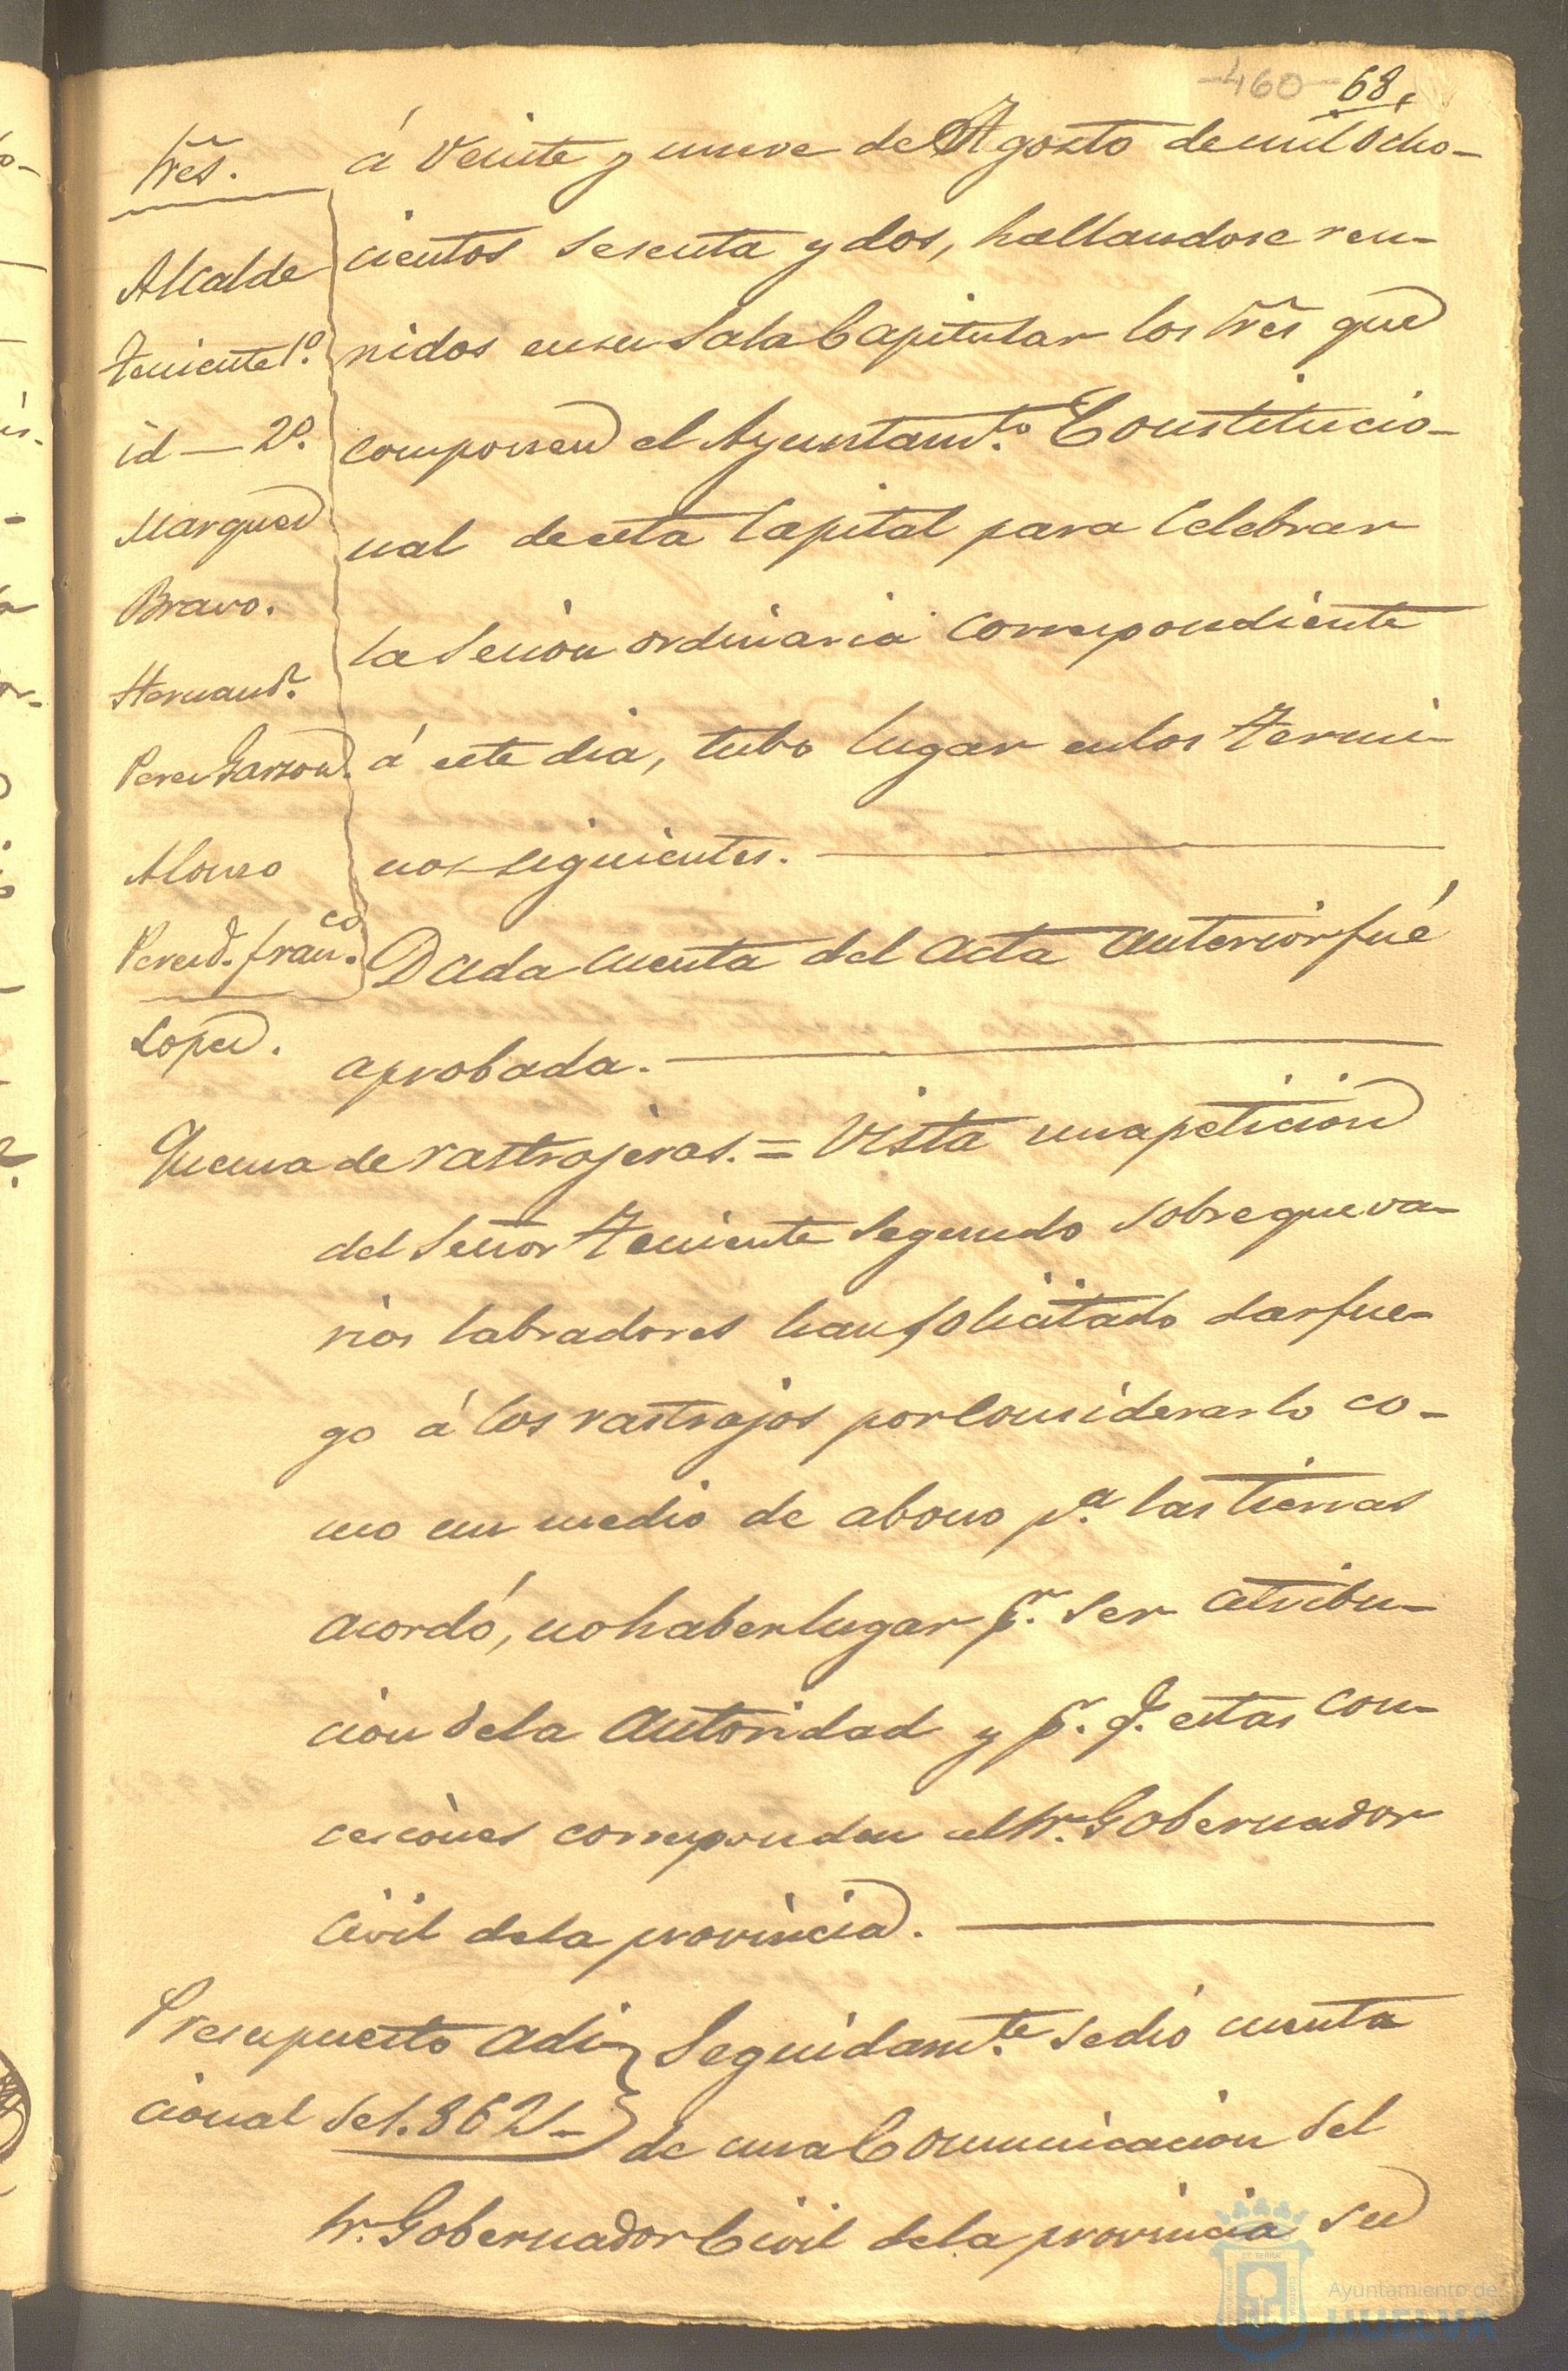 -460- 68,
Sres.
Alcalde
Teniente 1º.
id — 2º.
Marquez
Bravo.
Hernandz.
Perez Garzon.
Alonso
Perez d. Franco.
Lopez.
á Veinte y nueve de Agosto de mil Ocho-
cientos sesenta y dos, hallandose reu-
nidos en su Sala Capitular los Sres que
componen el Ayuntamto. Constitucio-
nal de esta Capital para Celebrar
la Sesion ordinaria correspondiente
á este dia, tubo lugar en los Termi-
nos siguientes.
Dada cuenta del acta anterior fué
aprobada.
Quema de rastrojeras. = Vista una peticion
del Señor Teniente Segundo sobre que va-
rios labradores han solicitado dar fue-
go á los rastrojos por Considerarlo co-
mo un medio de abono pa. las tierras
acordó, no haber lugar pr. ser atribu-
cion de la Autoridad y pr. q. estas con-
cesiones corresponden al Sr. Gobernador
Civil de la provincia.
Presupuesto Adi-
cional del 862-
Seguidamte. se dió cuenta
de una Comunicacion del
Sr. Gobernador Civil de la provincia su
Ayuntamiento de
HUELVA